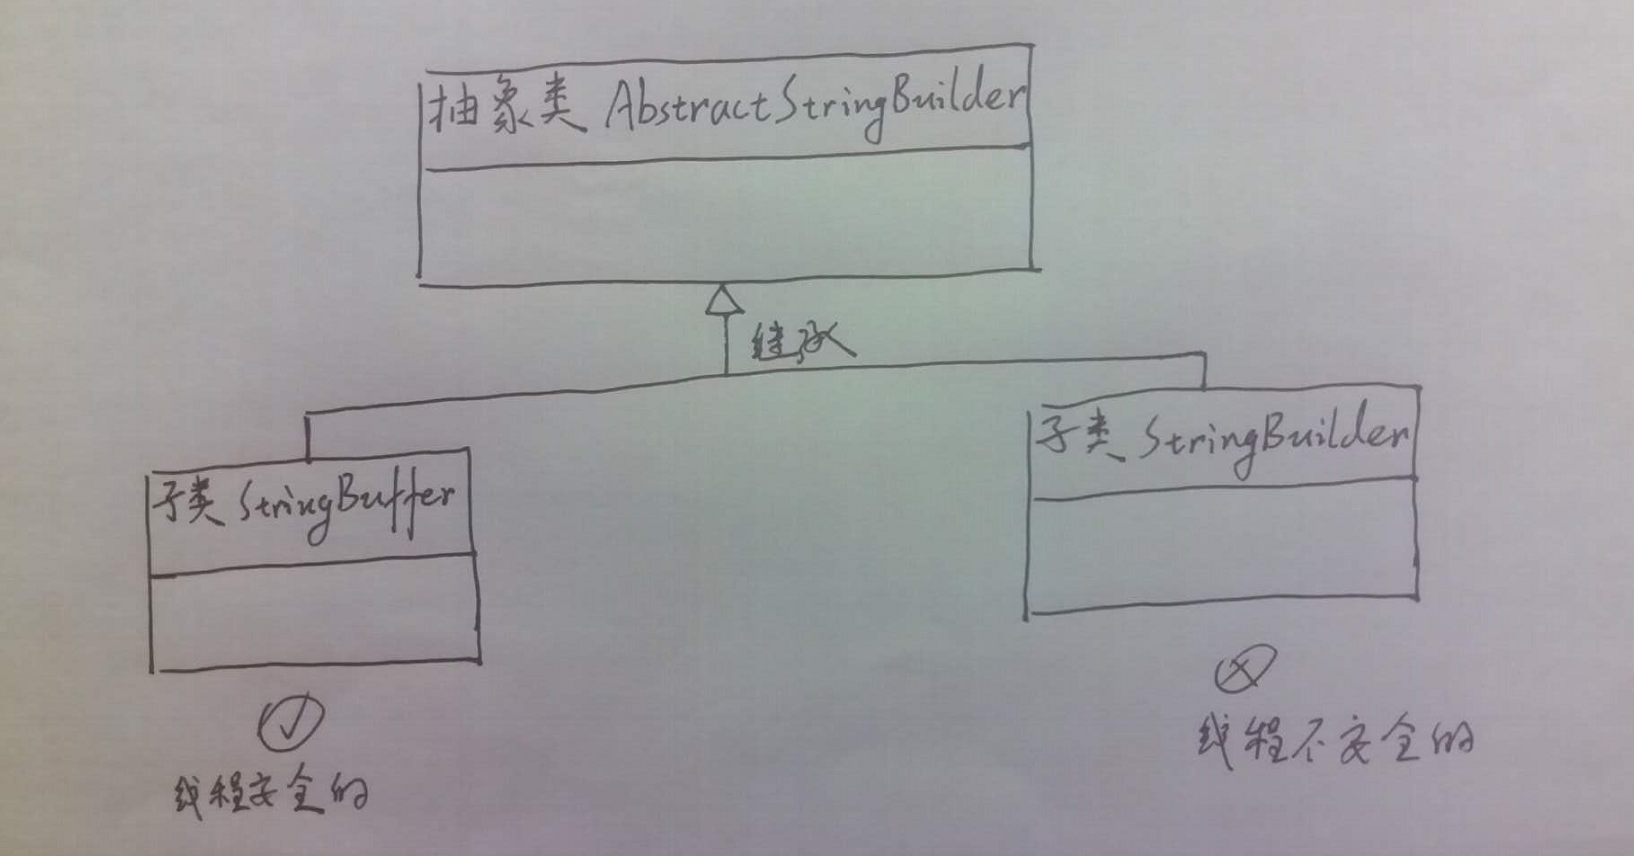 抽象类 AbstractStringBuilder
继承
子类 StringBuffer
子类 StringBuilder
线程安全的
线程不安全的